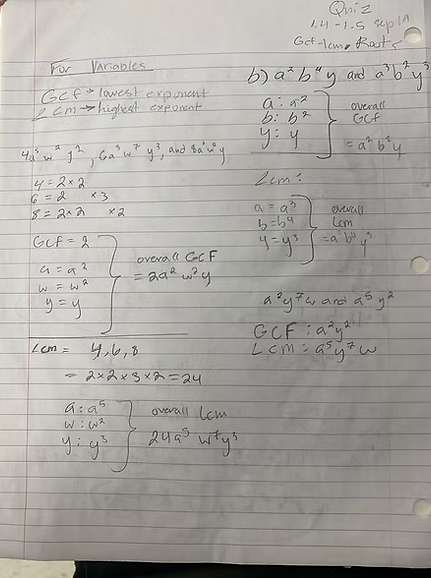 Quiz
1.4 - 1.5 sep 19
Gcf - lcm, Roots
For Variables
GCF → lowest exponent
LCM → highest exponent
w² y², 6a³ w⁷ y³, and
4 = 2 × 2
6 = 2 × 3
8 = 2 × 2 × 2
GCF = 2
a = a²
w = w²
y = y
overall GCF
= 2a² w² y
Lcm = 4, 6, 8
= 2 × 2 × 3 × 2 = 24
a: a⁵
w: w²
y: y³
overall lcm
24a⁵ w⁷ y³
b) a² b⁴ y and a³ b² y³
a: a²
b: b²
y: y
overall
GCF
= a² b² y
Lcm:
a = a³
b = b⁴
y = y³
overall
Lcm
b⁴ y³
a² y⁷ w and a⁵ y²
GCF: a² y²
LCM = a⁵ y⁷ w